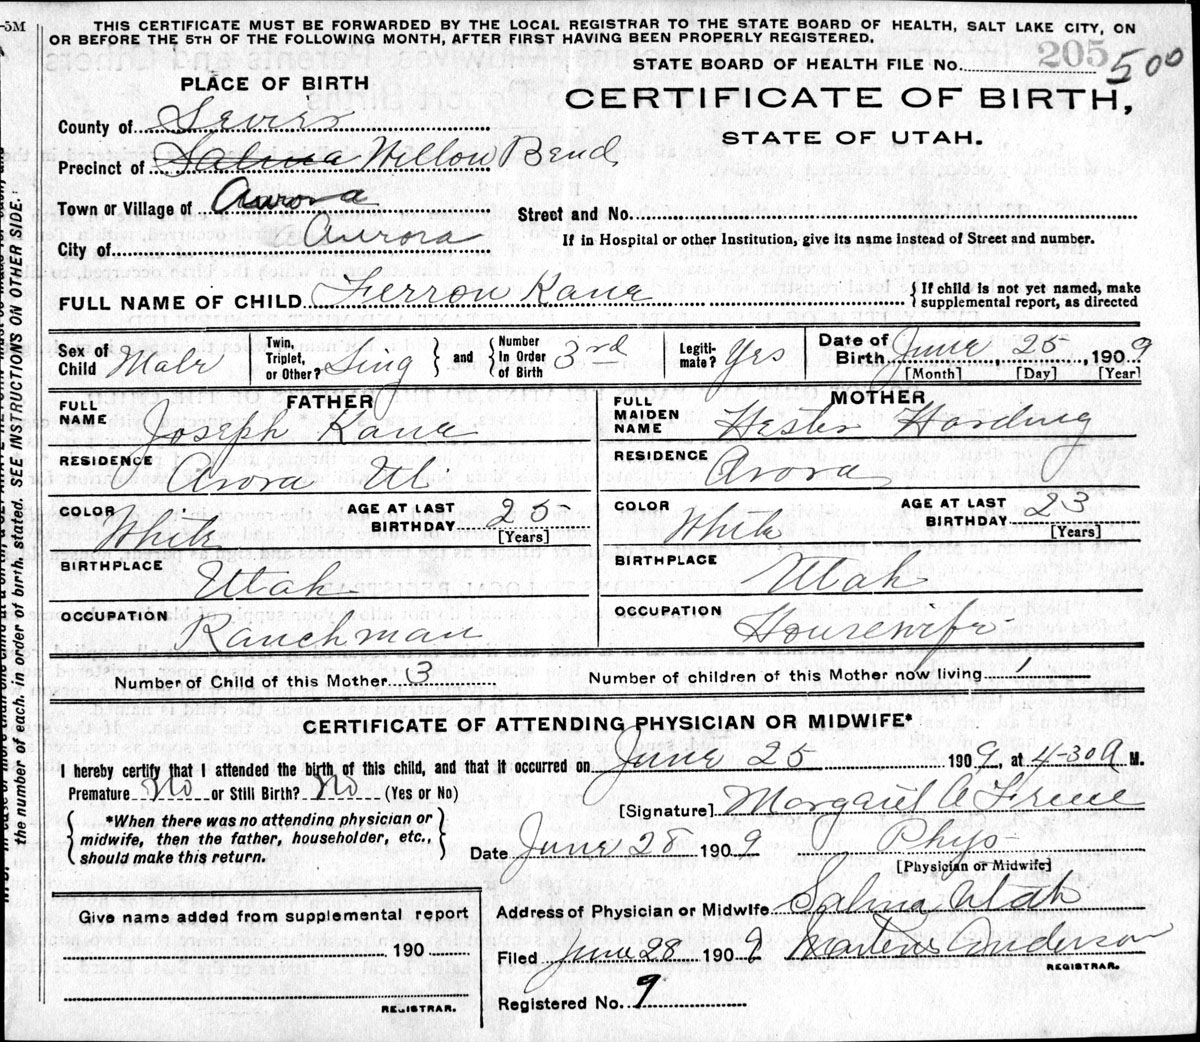 -5M
THIS CERTIFICATE MUST BE FORWARDED BY THE LOCAL REGISTRAR TO THE STATE BOARD OF HEALTH, SALT LAKE CITY, ON
OR BEFORE THE 5TH OF THE FOLLOWING MONTH, AFTER FIRST HAVING BEEN PROPERLY REGISTERED.
STATE BOARD OF HEALTH FILE No. 205 500
PLACE OF BIRTH
CERTIFICATE OF BIRTH,
STATE OF UTAH.
County of Sevier
Precinct of Salina Willow Bend
Town or Village of Aurora
Street and No.
City of Aurora
If in Hospital or other Institution, give its name instead of Street and number.
FULL NAME OF CHILD Ferron Kane { If child is not yet named, make
supplemental report, as directed
Sex of Child Male
Twin, Triplet, or Other? Sing } and { Number In Order of Birth 3rd
Legiti-mate? Yes
Date of Birth June, 25, 1909
[Month] [Day] [Year]
FATHER
MOTHER
FULL NAME Joseph Kane
FULL MAIDEN NAME Hester Harding
RESIDENCE Arora Ut
RESIDENCE Arora
COLOR White AGE AT LAST BIRTHDAY 25 [Years]
COLOR White AGE AT LAST BIRTHDAY 23 [Years]
BIRTHPLACE Utah
BIRTHPLACE Utah
OCCUPATION Ranchman
OCCUPATION Housewife
Number of Child of this Mother 3
Number of children of this Mother now living 1
CERTIFICATE OF ATTENDING PHYSICIAN OR MIDWIFE*
I hereby certify that I attended the birth of this child, and that it occurred on June 25 1909, at 4-30 A M.
Premature No or Still Birth? No (Yes or No)
[Signature] Margaret A
{ *When there was no attending physician or
midwife, then the father, householder, etc.,
should make this return. }
Date June 25 1909 Phys
[Physician or Midwife]
Address of Physician or Midwife Salina Utah
Give name added from supplemental report
190
REGISTRAR.
Filed June 28 1909 Anderson
REGISTRAR.
Registered No. 9
the number of each, in order of birth, stated. SEE INSTRUCTIONS ON OTHER SIDE.